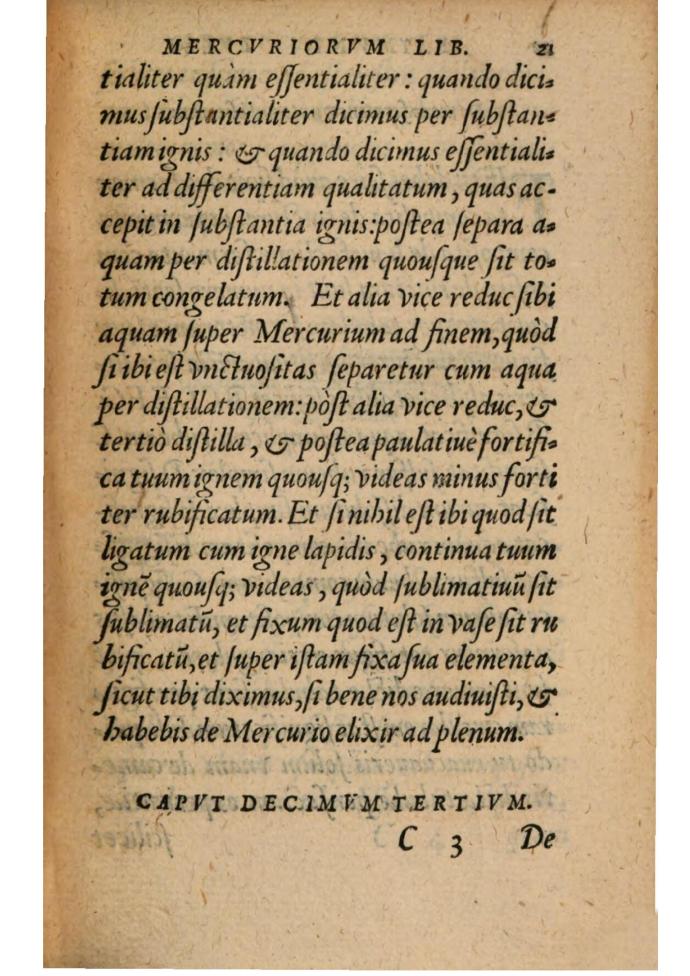 MERCVRIORVM LIB. 21
tialiter quàm eſſentialiter : quando dici-
mus ſubſtantialiter dicimus per ſubſtan-
tiam ignis : & quando dicimus eſſentiali-
ter ad differentiam qualitatum, quas ac-
cepit in ſubſtantia ignis: poſtea ſepara a-
quam per diſtillationem quouſque ſit to-
tum congelatum. Et alia vice reduc ſibi
aquam ſuper Mercurium ad finem, quòd
ſi ibi eſt vnctuoſitas ſeparetur cum aqua
per diſtillationem: pòſt alia vice reduc, &
tertiò diſtilla, & poſtea paulatiuè fortifi-
ca tuum ignem quouſq; videas minus forti
ter rubificatum. Et ſi nihil eſt ibi quod ſit
ligatum cum igne lapidis, continua tuum
ignē quouſq; videas, quòd ſublimatiuū ſit
ſublimatū, et fixum quod eſt in vaſe ſit ru
bificatū, et ſuper iſtam fixa ſua elementa,
ſicut tibi diximus, ſi bene nos audiuiſti, &
habebis de Mercurio elixir ad plenum.
CAPVT DECIMVM TERTIVM.
C 3 De